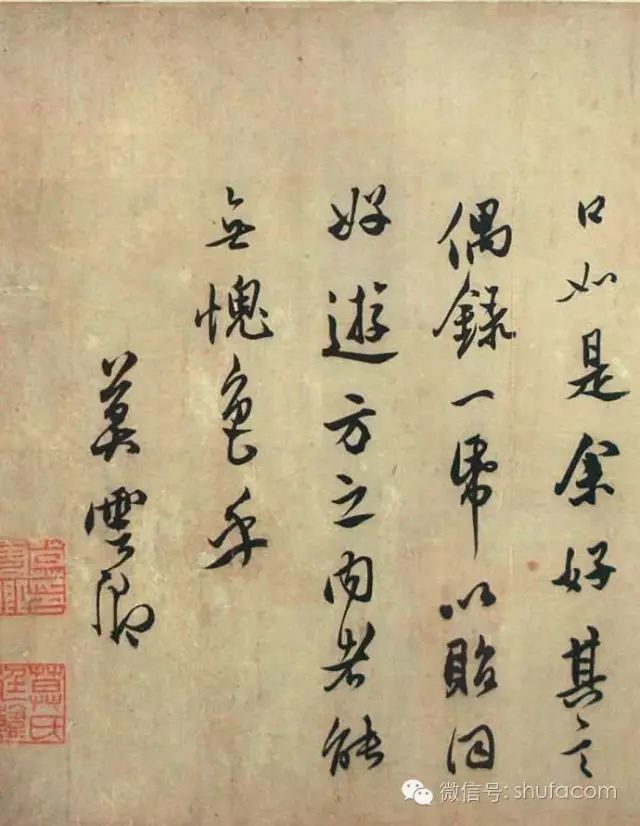 口如是余好其言
偶錄一帋以貽同
好遊方之內者能
無愧色乎
莫雲卿
莫氏廷韓
微信号: shufacom